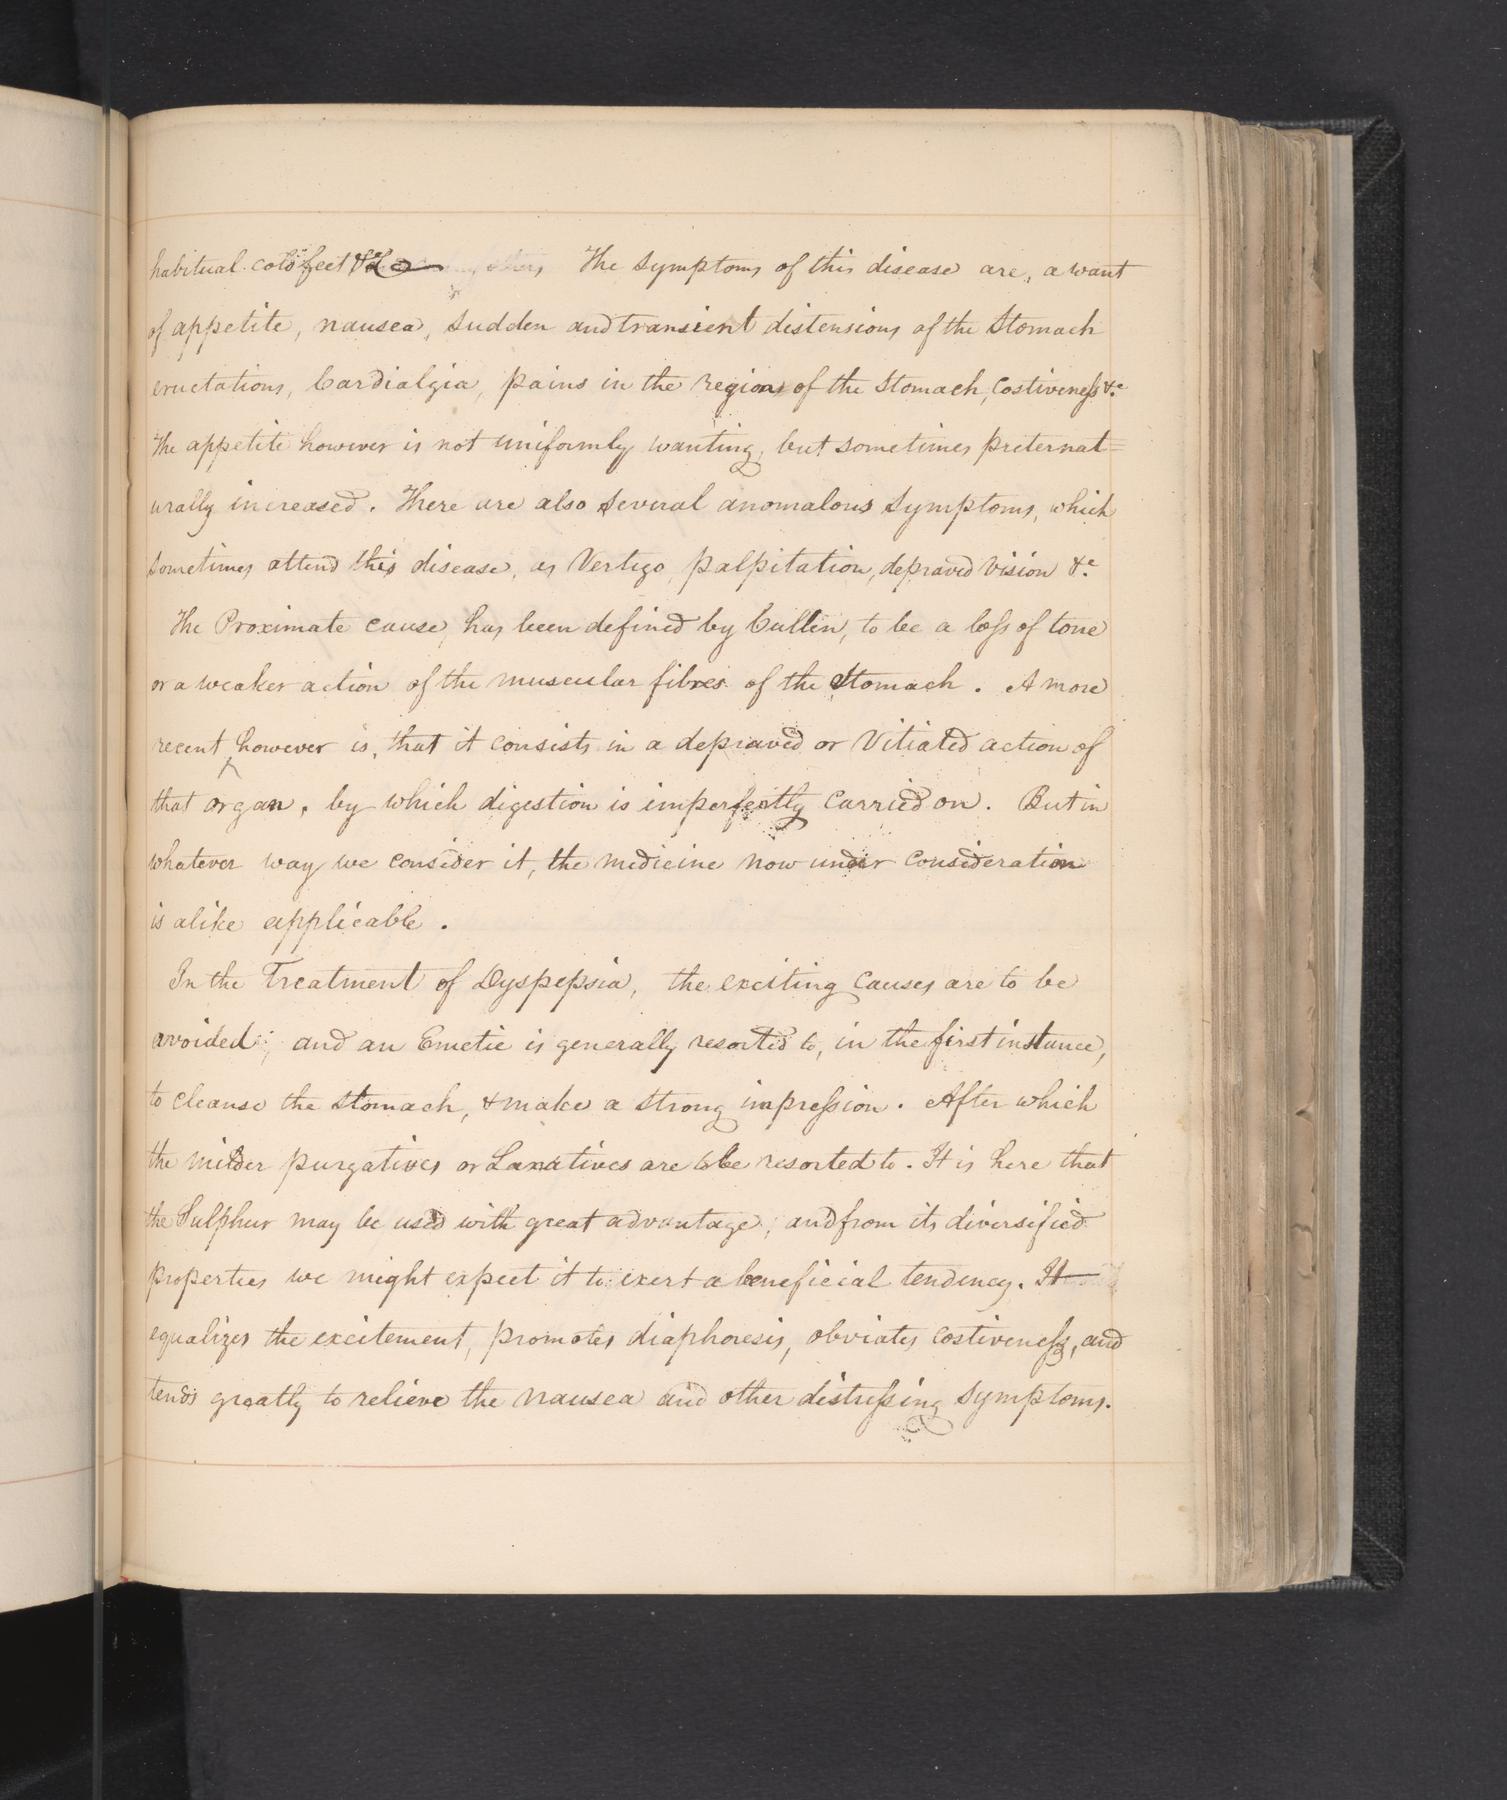 habitual cold feet &c The symptoms of this disease are, a want
of appetite, nausea, sudden and transient distensions of the Stomach
eructations, Cardialgia, pains in the region of the Stomach, Costiveness &c.
The appetite however is not uniformly wanting, but sometimes preternat=
urally increased. There are also several anomalous symptoms, which
sometimes attend this disease, as Vertigo, palpitation, depraved vision &c.
The Proximate cause, has been defined by Cullen, to be a loss of tone
or a weaker action of the muscular fibres of the Stomach. A more
recent ‸ however is, that it consists in a depraved or Vitiated action of
that organ, by which digestion is imperfectly carried on. But in
whatever way we consider it, the medicine now under consideration
is alike applicable.
In the Treatment of Dyspepsia, the exciting causes are to be
avoided; and an Emetic is generally resorted to, in the first instance,
to cleanse the stomach, & make a strong impression. After which
the milder purgatives or Laxatives are to be resorted to. It is here that
the Sulphur may be used with great advantage; and from its diversified
properties we might expect it to exert a beneficial tendency. It
equalizes the excitement, promotes diaphoresis, obviates costiveness, and
tends greatly to relieve the nausea and other distressing symptoms.